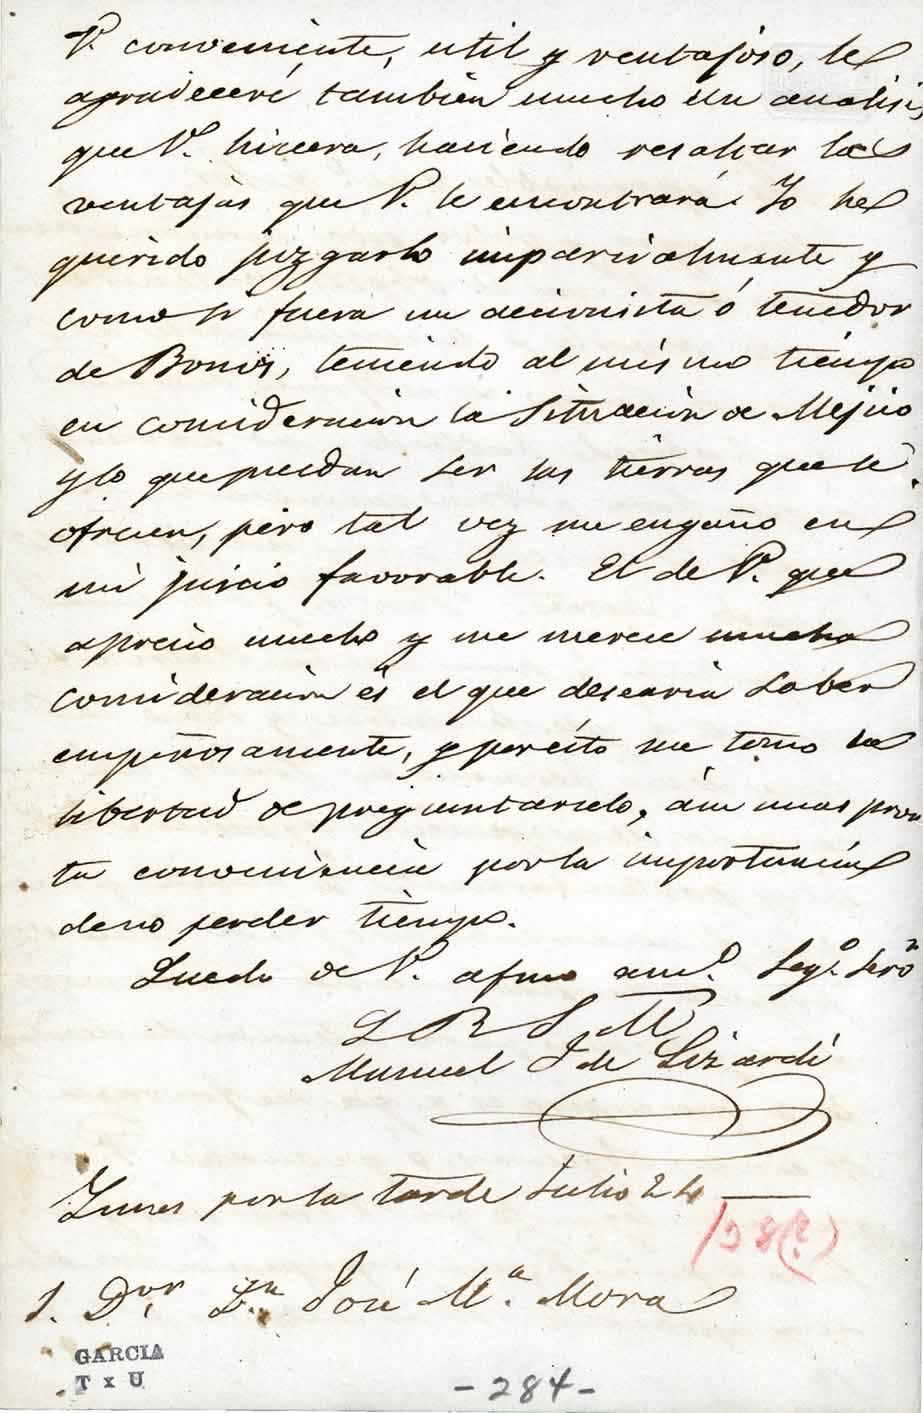 V. conveniente, util y ventajoso, le
agradeceré tambien mucho un analisis
que V. hiciera, haciendo resaltar las
ventajas que V. le encontrará. Yo he
querido juzgarlo imparcialmente y
como si fuera un accionista ó tenedor
de Bonos, teniendo al mismo tiempo
en consideracion la Situacion de Mejico
y lo que puedan ser las tierras que se
ofrecen, pero tal vez me engaño en
mi juicio favorable. El de V. que
aprecio mucho y me merece mucha
consideracion és el que desearia saber
empeñosamente, y por ésto me tomo la
libertad de preguntarselo, á su mas pron
ta conveniencia por la importancia
de no perder tiempo.
Quedo de V. afmo amo. Sego. Servor
Q B S M
Manuel J de Lizardi
Lunes por la tarde Julio 24 —
/38(?)
S. Dor. Dn José Ma. Mora
GARCIA
T x U
- 284 -